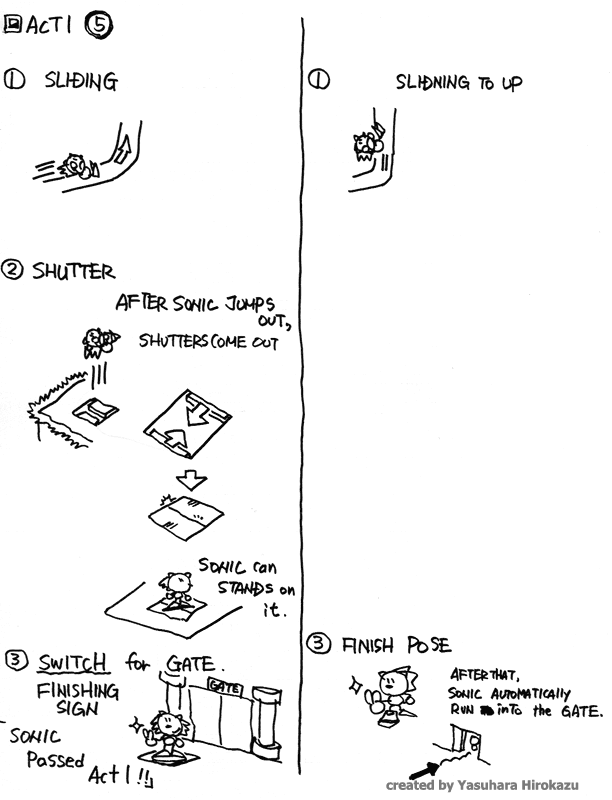 ACT 1 ⑤
① SLIDING
② SHUTTER
AFTER SONIC JUMPS
OUT,
SHUTTERS COME OUT
SONIC can
STANDS on
it.
③ SWITCH for GATE.
FINISHING
SIGN
GATE
SONIC
Passed
Act 1!!
① SLIDNING TO UP
③ FINISH POSE
AFTER THAT,
SONIC AUTOMATICALLY
RUN into the GATE.
created by Yasuhara Hirokazu